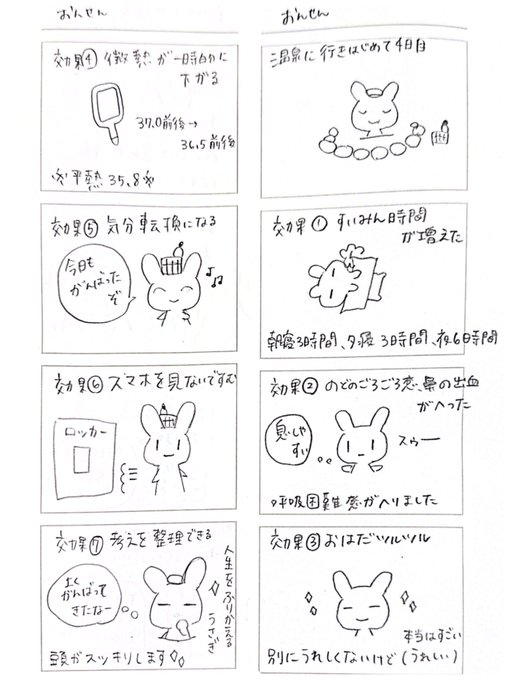 おんせん
温泉に行きはじめて4日目
効果① すいみん時間
が増えた
朝寝3時間、夕寝3時間、夜6時間
効果② のどのごろごろ感、鼻の出血
がへった
息しや
すい
スゥー
呼吸困難感がへりました
効果③ おはだツルツル
別にうれしくないけど(うれしい)
本当はすごい
おんせん
効果④ 微熱が一時的に
下がる
37.0前後→
36.5前後
※平熱35.8※
効果⑤ 気分転換になる
今日も
がんばった
ぞ
♪♫
効果⑥ スマホを見ないですむ
ロッカー
効果⑦ 考えを整理できる
よく
がんばって
きたなー
人生をふりかえる
うさぎ
頭がスッキリします